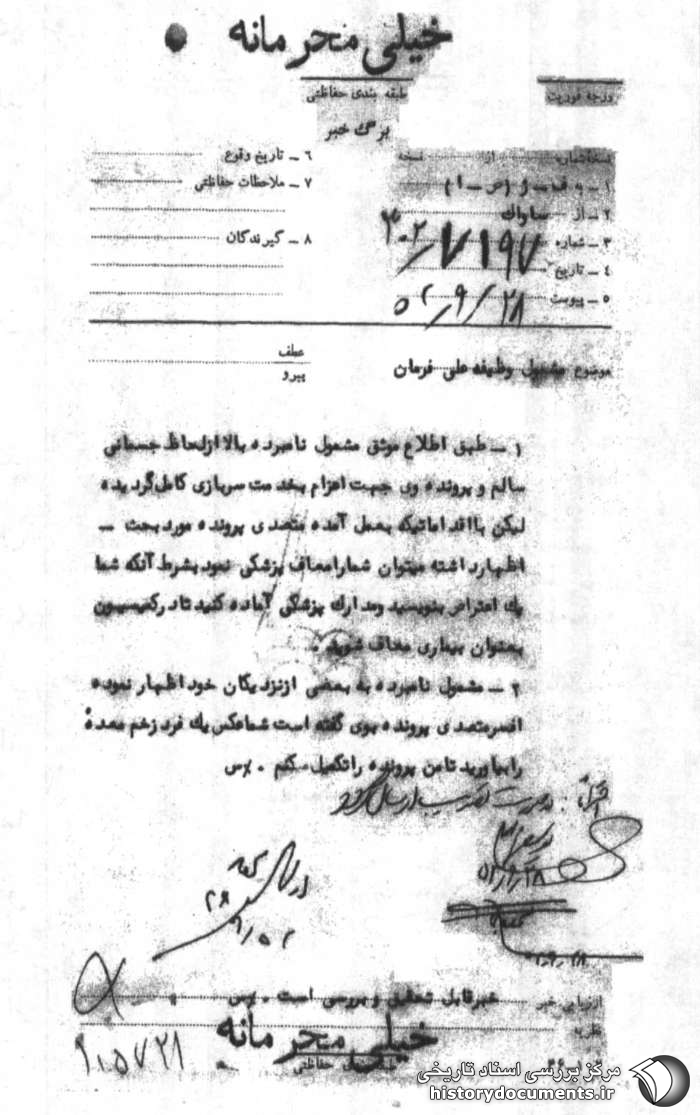 خیلی محرمانه
درجه فوریت
طبقه بندی حفاظتی
برگ خبر
نسخه شماره از نسخه
۱ ـ به
۲ ـ از ساواک
۳ ـ شماره ۷۱۹۷
۴ ـ تاریخ
۵ ـ پیوست ۵۲/۹/۲۸
۶ ـ تاریخ وقوع
۷ ـ ملاحظات حفاظتی
۸ ـ گیرندگان
موضوع مشمول وظیفه علی فرمان
عطف
پیرو
۱ ـ طبق اطلاع موثق مشمول نامبرده بالا ازلحاظ جسمانی
سالم و پرونده وی جهت اعزام بخدمت سربازی کامل گردیده
لیکن با اقداماتیکه بعمل آمده متصدی پرونده مورد بحث ـ
اظهار داشته میتوان شما را معاف پزشکی نمود بشرط آنکه شما
یک اعتراض بنویسید و مدارک پزشکی آماده کنید تا در کمیسیون
بعنوان بیماری معاف شوید .
۲ ـ مشمول نامبرده به بعضی از نزدیکان خود اظهار نموده
افسر متصدی پرونده بوی گفته است شما عکس یک فرد زخم معدهٔ
را بیاورید تا من پرونده را تکمیل کنم . ۲س
۵۲/۹/۲۸
ارزیابی خبر خبر قابل تحقیق و بررسی است . ۲س
نظریه
خیلی محرمانه
طبقه بندی حفاظتی
۹۰۵۷۲۱
مرکز بررسی اسناد تاریخی
historydocuments.ir